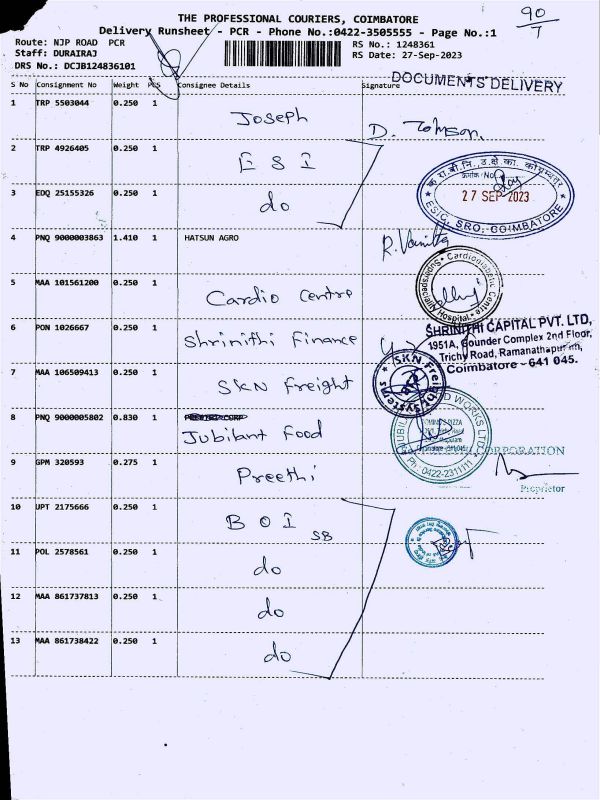 THE PROFESSIONAL COURIERS, COIMBATORE
90
7
Delivery Runsheet - PCR - Phone No.:0422-3505555 - Page No.:1
Route: NJP ROAD PCR
RS No.: 1248361
Staff: DURAIRAJ
RS Date: 27-Sep-2023
DRS No.: DCJB124836101
DOCUMENTS DELIVERY
S No Consignment No Weight PCS Consignee Details Signature
1 TRP 5503044 0.250 1 Joseph D. Johnson.
2 TRP 4926405 0.250 1 E S I
3 EDQ 25155326 0.250 1 do
27 SEP 2023
ESIC, SRO, COIMBATORE
4 PNQ 9000003863 1.410 1 HATSUN AGRO
5 MAA 101561200 0.250 1 Cardio Centre
Cardiodiabetic Centre
Superspeciality Hospital
6 PON 1026667 0.250 1 Shrinithi Finance
SHRINITHI CAPITAL PVT. LTD,
1951A, Gounder Complex 2nd Floor,
Trichy Road, Ramanathapuram,
Coimbatore - 641 045.
7 MAA 106509413 0.250 1 SKN Freight
SKN Freight Systems
8 PNQ 9000005802 0.830 1 Jubilant Food
Ph : 0422-2311111
CORPORATION
9 GPM 320593 0.275 1 Preethi
Proprietor
10 UPT 2175666 0.250 1 B O I SB
11 POL 2578561 0.250 1 do
12 MAA 861737813 0.250 1 do
13 MAA 861738422 0.250 1 do